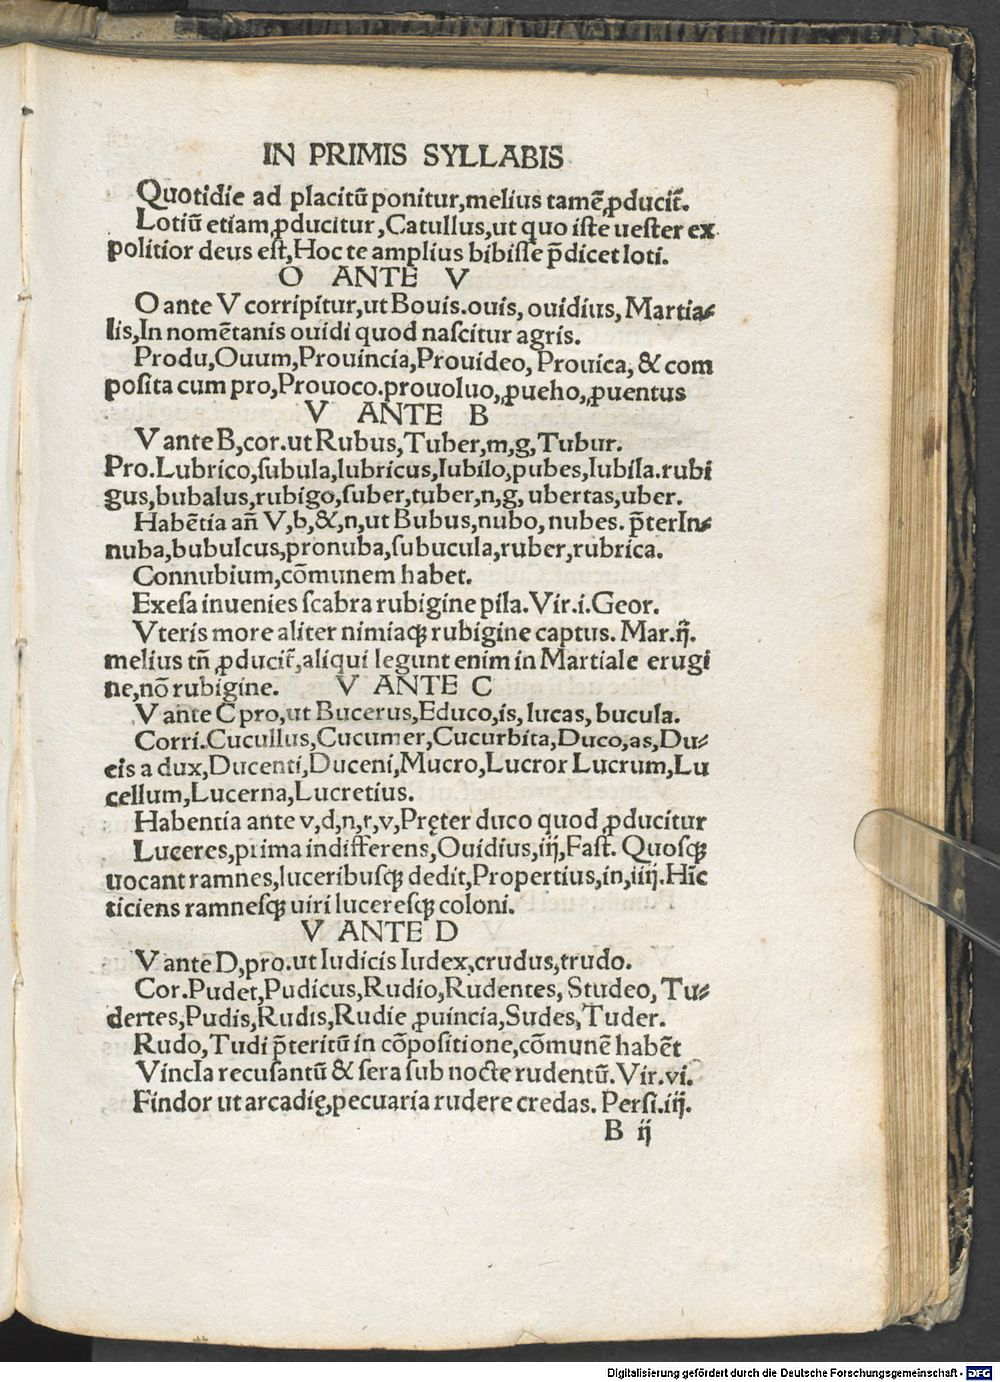 IN PRIMIS SYLLABIS
Quotidie ad placitū ponitur,melius tamē ꝓducit᷑.
Lotiū etiam,ꝓducitur,Catullus,ut quo iste uester ex
politior deus est,Hoc te amplius bibisse p̄dicet loti.
O ANTE V
O ante V corripitur,ut Bouis.ouis, ouidius, Martia⸗
lis,In nomētanis ouidi quod nascitur agris.
Produ,Ouum,Prouincia,Prouideo, Prouica, & com
posita cum pro,Prouoco.prouoluo,ꝓueho,ꝓuentus
V ANTE B
V ante B,cor.ut Rubus,Tuber,m,g,Tubur.
Pro.Lubrico,subula,lubricus,Iubilo,pubes,Iubila.rubi
gus,bubalus,rubigo,suber,tuber,n,g, ubertas,uber.
Habētia añ V,b,&,n,ut Bubus,nubo, nubes. p̄ter In⸗
nuba,bubulcus,pronuba,subucula,ruber,rubrica.
Connubium,cōmunem habet.
Exesa inuenies scabra rubigine pila.Vir.i.Geor.
Vteris more aliter nimiaqꝫ rubigine captus. Mar.ij.
melius tñ ꝓducit᷑,aliqui legunt enim in Martiale erugi
ne,nō rubigine. V ANTE C
V ante C pro,ut Bucerus,Educo,is, lucas, bucula.
Corri.Cucullus,Cucumer,Cucurbita,Duco,as,Du⸗
cis a dux,Ducenti,Duceni,Mucro,Lucror Lucrum,Lu
cellum,Lucerna,Lucretius.
Habentia ante v,d,n,r,v,Pręter duco quod ꝓducitur
Luceres,prima indifferens,Ouidius,iij,Fast. Quosqꝫ
uocant ramnes,luceribusqꝫ dedit,Propertius,in,iiij.Hīc
ticiens ramnesqꝫ uiri luceresqꝫ coloni.
V ANTE D
V ante D,pro.ut Iudicis Iudex,crudus,trudo.
Cor.Pudet,Pudicus,Rudio,Rudentes, Studeo, Tu⸗
dertes,Pudis,Rudis,Rudie ꝓuincia,Sudes,Tuder.
Rudo,Tudi p̄teritū in cōpositione,cōmunē habēt
Vincla recusantū & sera sub nocte rudentū.Vir.vi.
Findor ut arcadię,pecuaria rudere credas. Persi.iij.
B ij
Digitalisierung gefördert durch die Deutsche Forschungsgemeinschaft - DFG